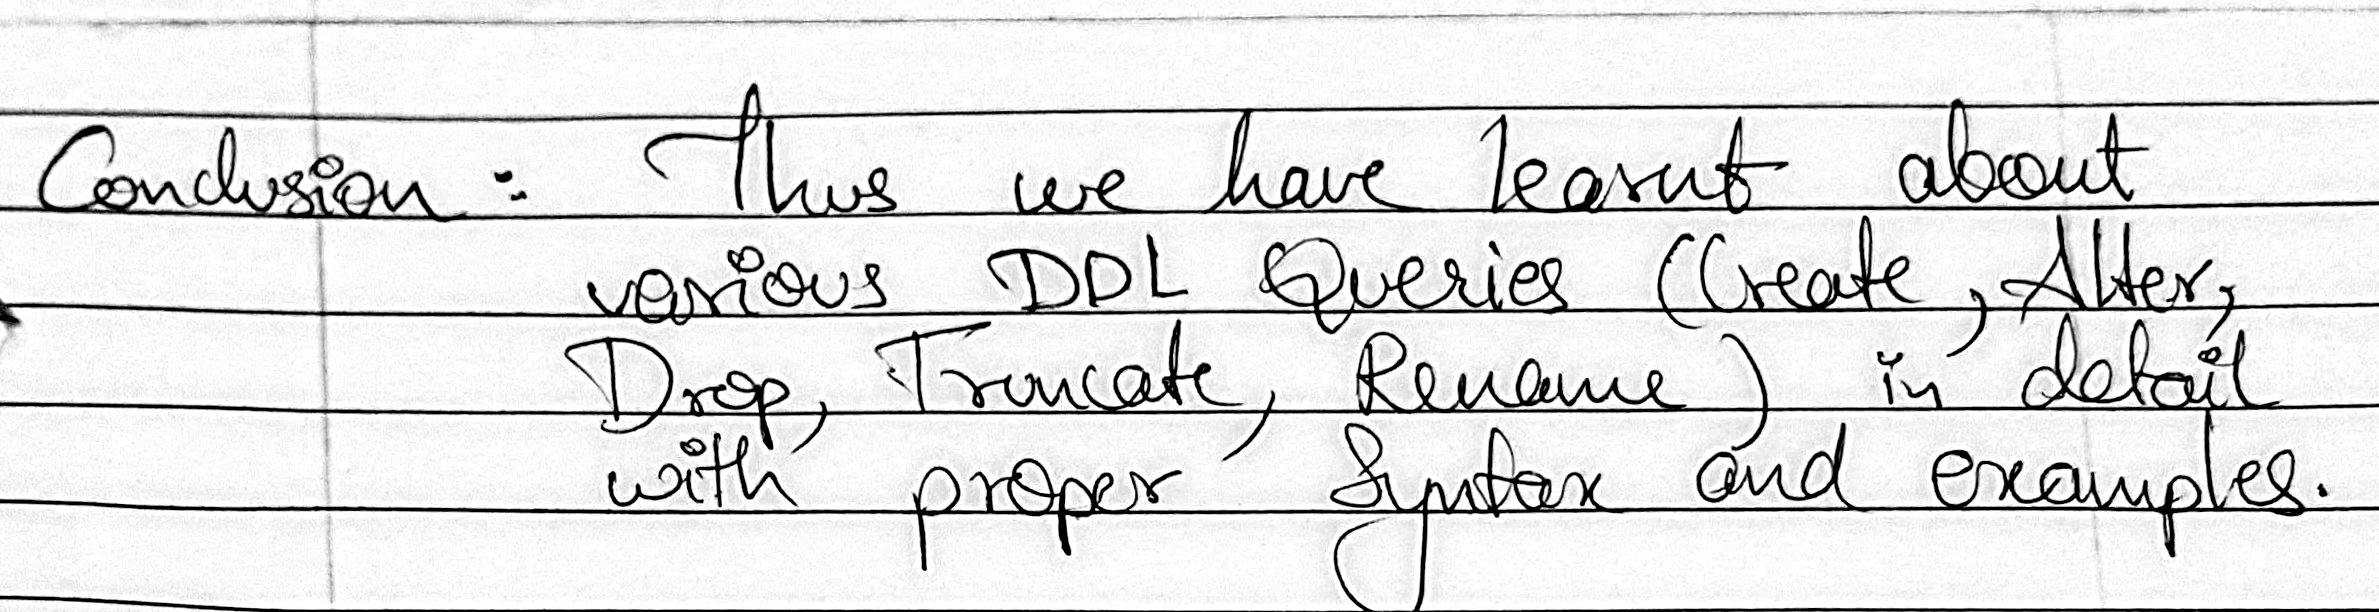 Conclusion : Thus we have learnt about
various DDL Queries (Create, Alter,
Drop, Truncate, Rename) in detail
with proper Syntax and examples.